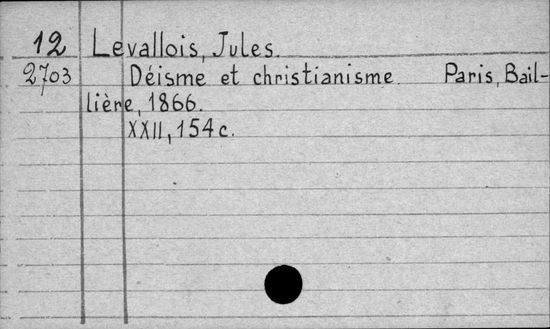 12 Levallois, Jules.
2703 Déisme et christianisme. Paris, Bail-
lière, 1866.
XXII, 154 c.